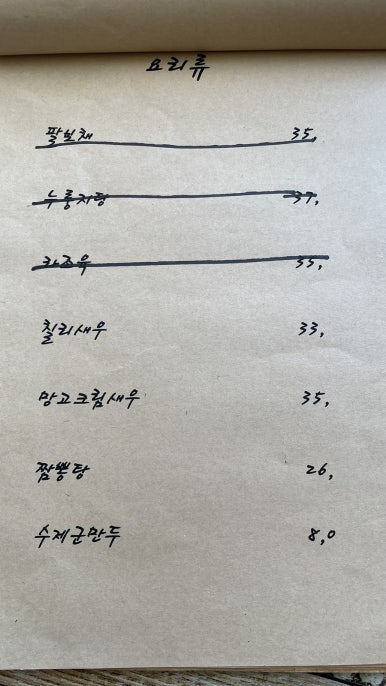 요리류
팔보채 35,
누룽지탕 37,
라조육 33,
칠리새우 33,
망고크림새우 35,
짬뽕탕 26,
수제군만두 8,0